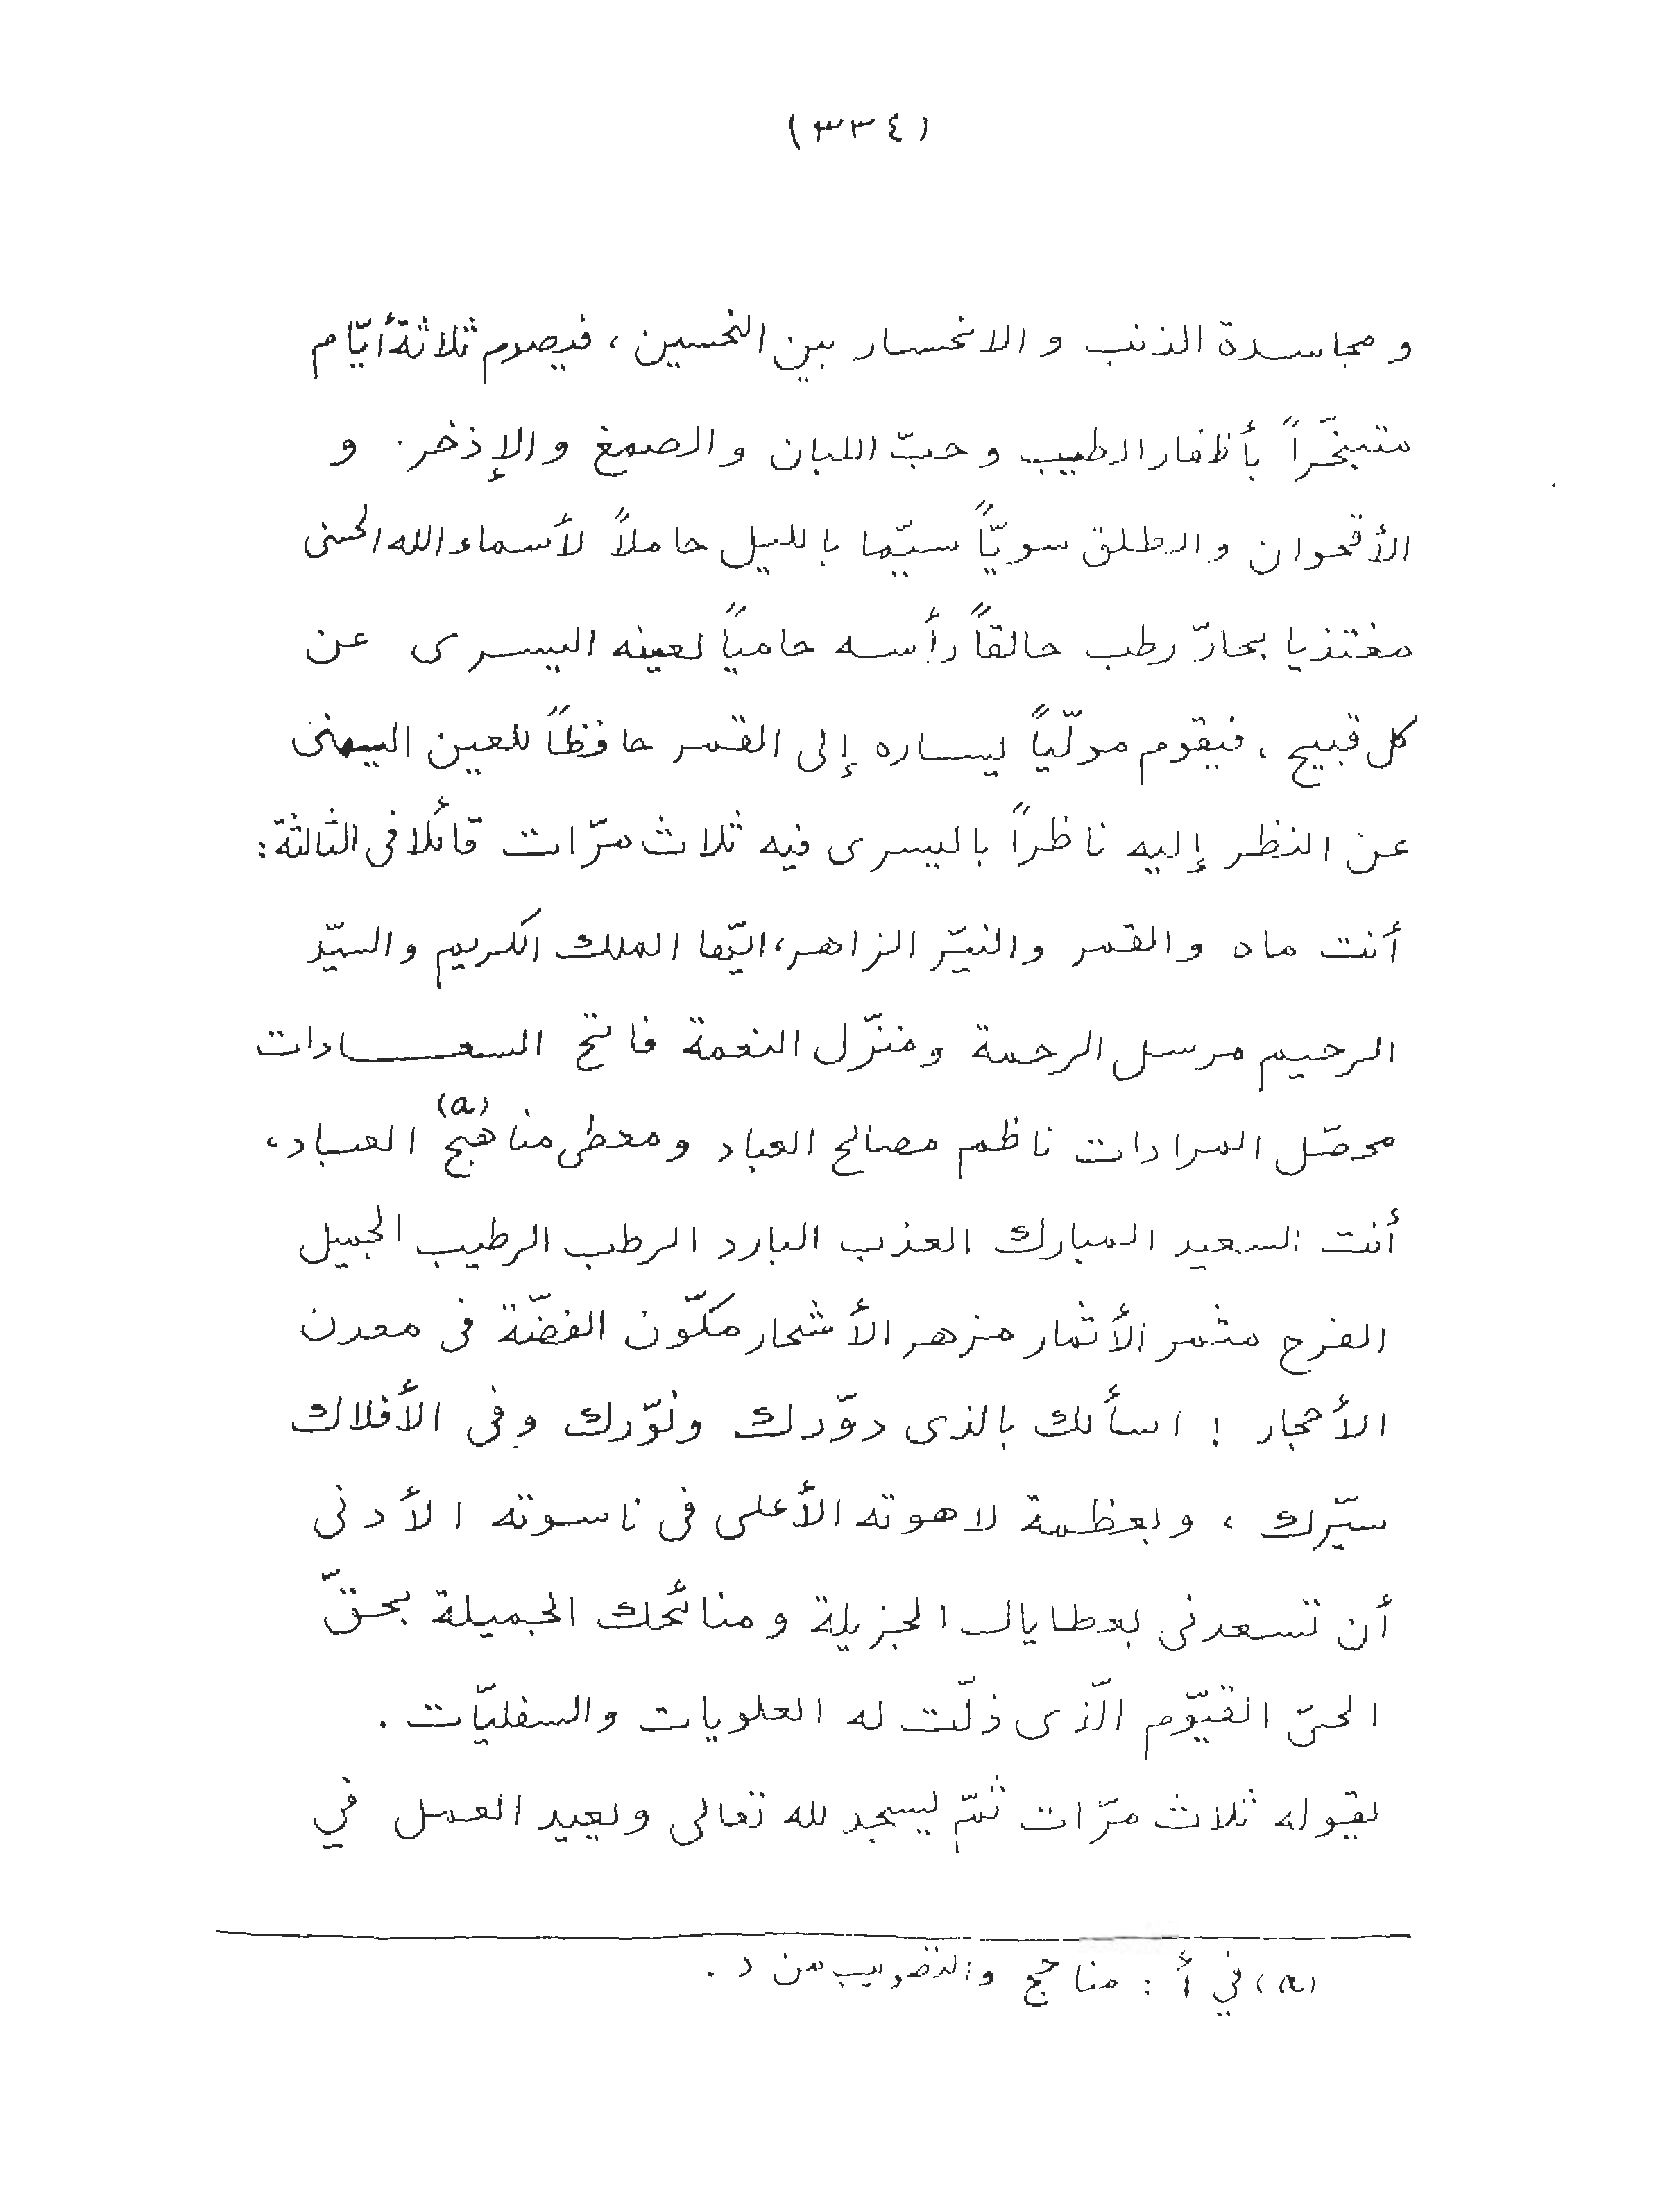 (٣٣٤)
و مجاسدة الذنب و الانحسار بين النحسين ، فيصوم ثلاثة أيّام
متبخّراً بأظفار الطيب و حبّ اللبان والصمغ والإذخر . و
الأقحوان والطلق سويّاً سيّما بالليل حاملاً لأسماء الله الحسنى
مغتذيا بحارّ رطب حالقاً رأسه حامياً لعينه اليسرى عن
كل قبيح ، فيقوم مولّياً ليساره إلى القمر حافظاً للعين اليمنى
عن النظر إليه ناظراً باليسرى فيه ثلاث مرّات قائلا فى الثالثة :
أنت ماه والقمر والنيّر الزاهر، ايّها الملك الكريم والسيّد
الرحيم مرسل الرحمة ومنزّل النعمة فاتح السعادات
محصّل المرادات ناظم مصالح العباد ومعطى مناهج (a) العباد ،
أنت السعيد المبارك العذب البارد الرطب الرطيب الجميل
الفرح مثمر الأثمار مزهر الأشحار مكوّن الفضّة فى معدن
الأحجار ! اسألك بالذى دوّرك ونوّرك وفى الأفلاك
سيّرك ، وبعظمة لاهوته الأعلى فى ناسوته الأدنى
أن تسعدنى بعطاياك الجزيلة ومنائحك الجميلة بحقّ
الحىّ القيّوم الّذى ذلّت له العلويات والسفليّات .
يقوله ثلاث مرّات ثمّ ليسجد لله تعالى ويعيد العمل في
(a) في أ : مناحج والتصويب من د .